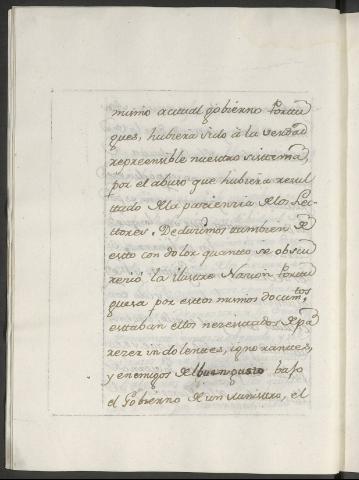 mismo actual gobierno Portu
gues, hubiera sido â la verdad
reprensible nuestro sistema,
por el abuso que hubiera resul
tado de la paciencia de los Lec-
tores. Deducimos tambien de
esto con dolor quanto se obscu
reció la ilustre Nacion Portu
guesa por estos mismos docum.tos
estaban ellos necesitados de pa
recer indolentes, ignorantes,
y enemigos del buen gusto baxo
el Gobierno de un Ministro, el